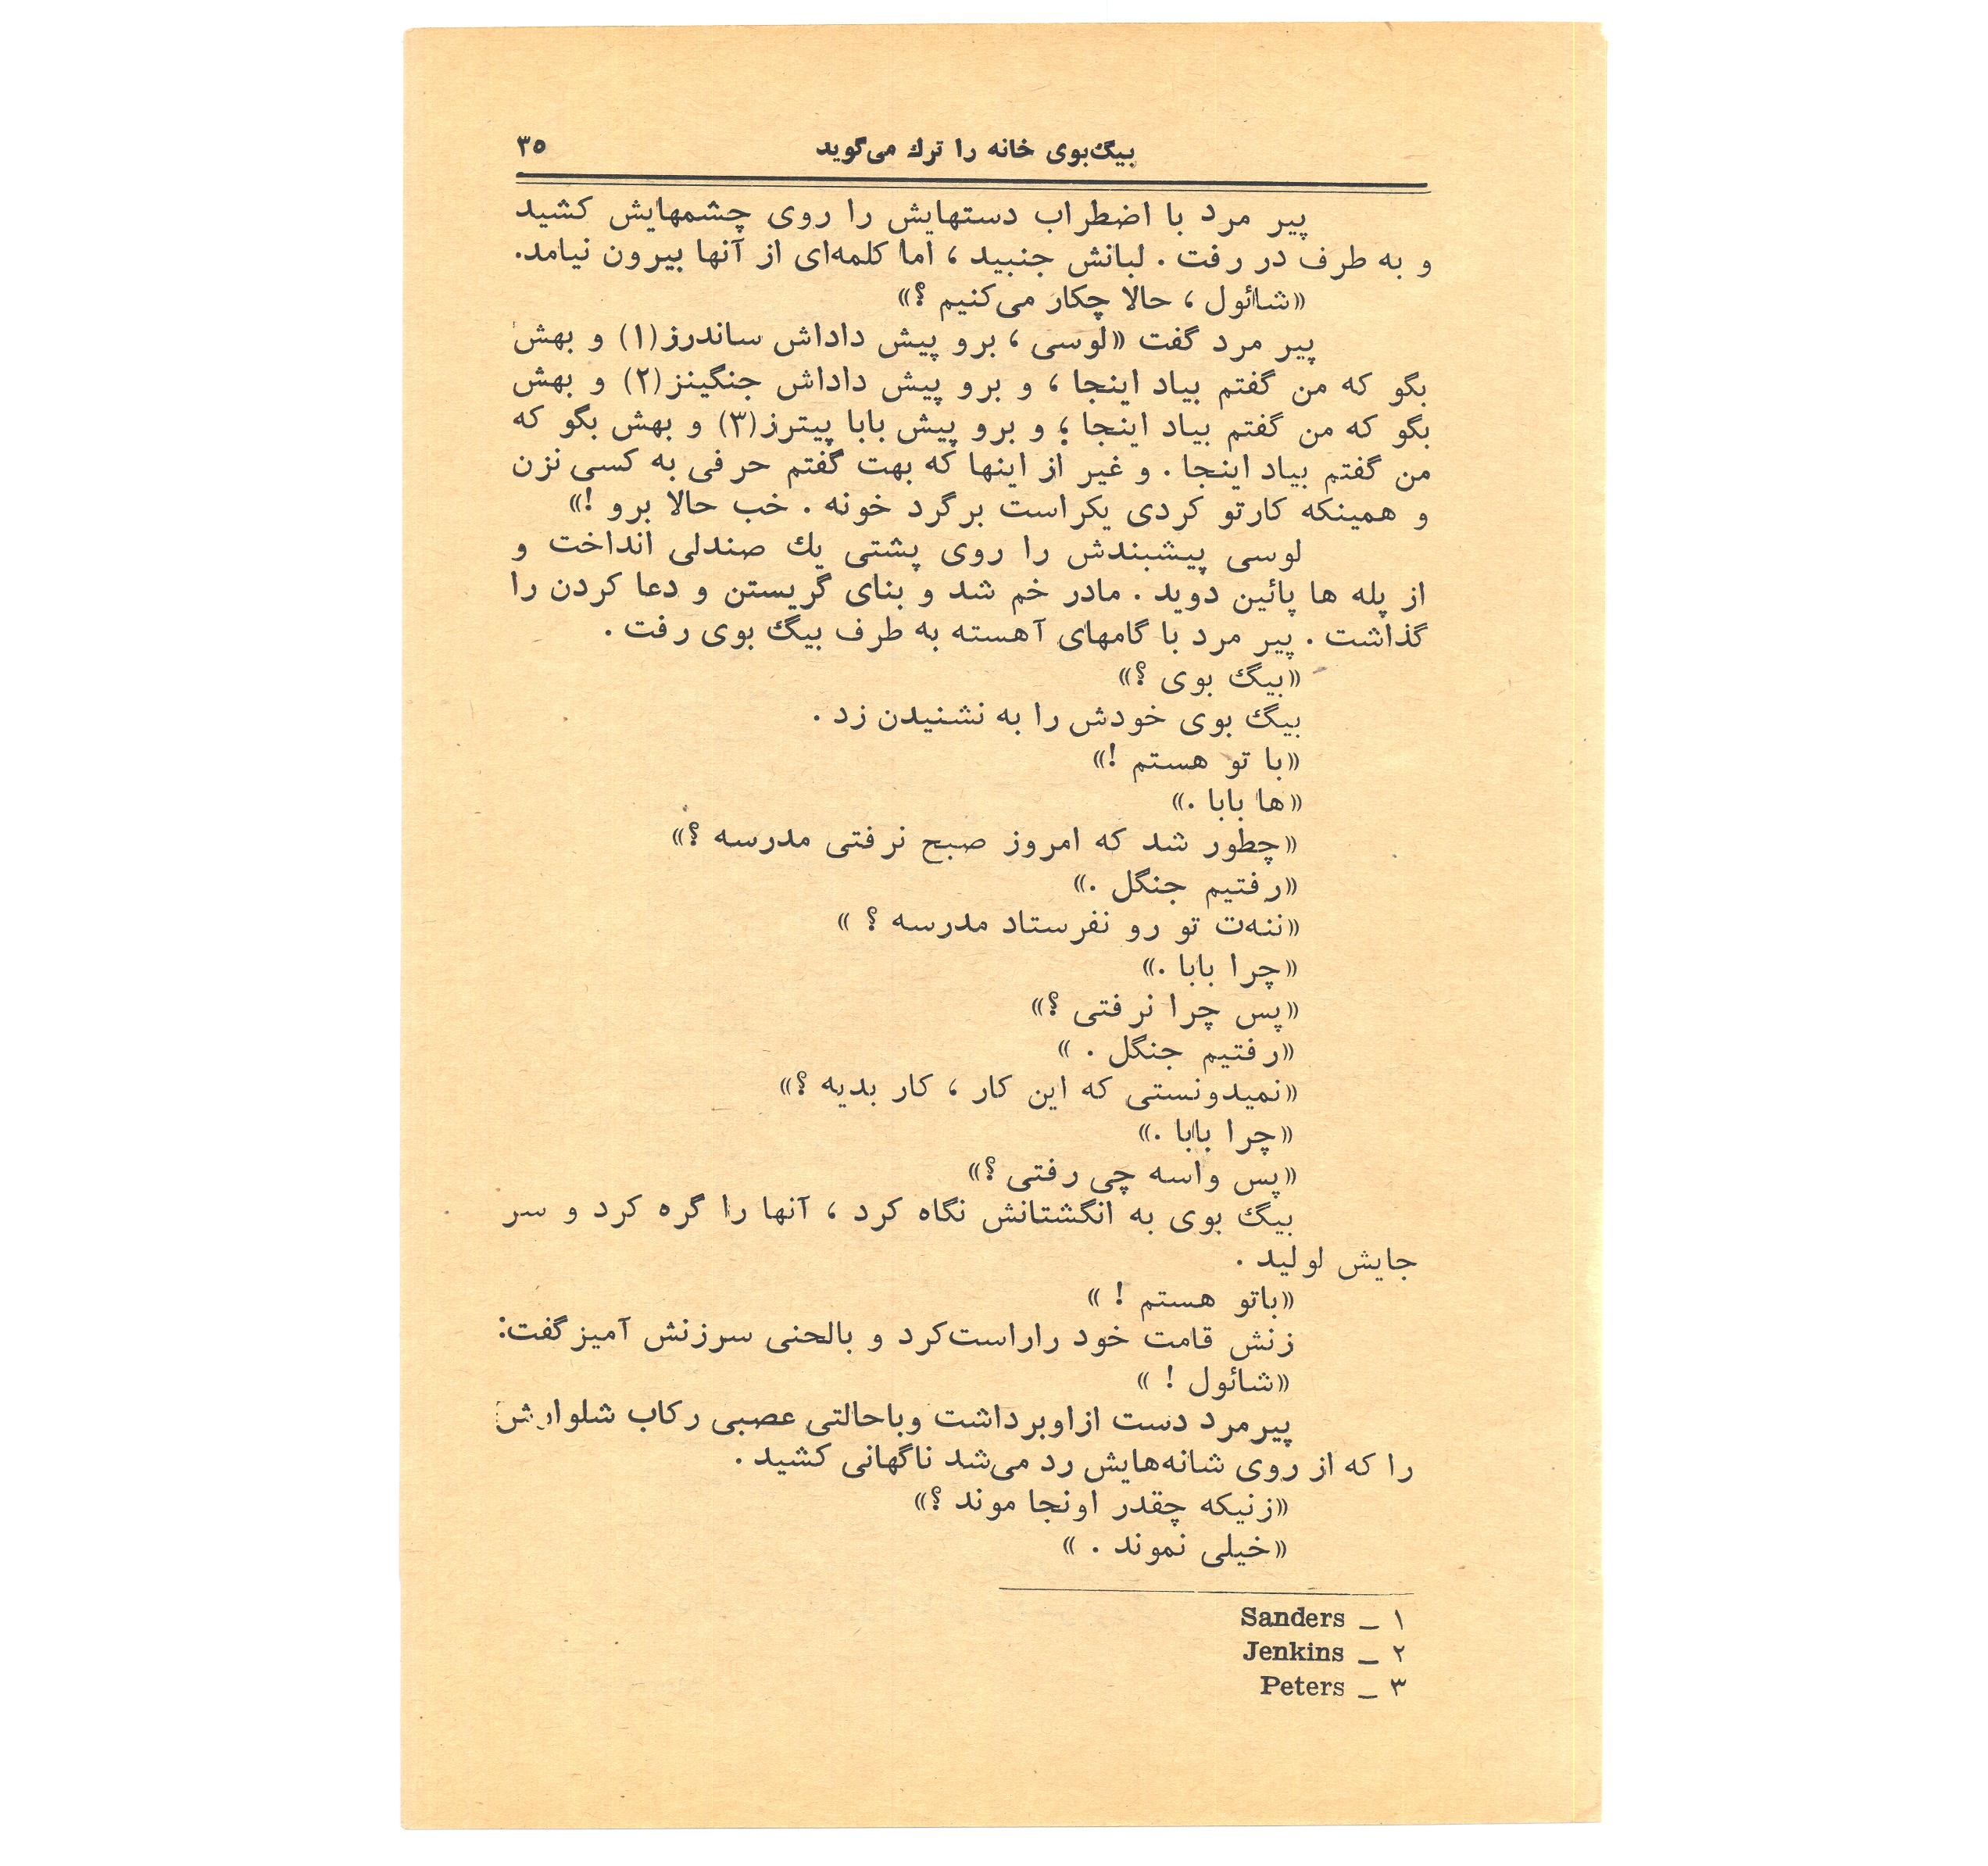 بیگ‌بوی خانه را ترك می‌گوید ۳۵
پیر مرد با اضطراب دستهایش را روی چشمهایش کشید
و به طرف در رفت . لبانش جنبید ، اما کلمه‌ای از آنها بیرون نیامد.
«شائول ، حالا چکار می‌کنیم ؟»
پیر مرد گفت «لوسی ، برو پیش داداش ساندرز(۱) و بهش
بگو که من گفتم بیاد اینجا ، و برو پیش داداش جنگینز(۲) و بهش
بگو که من گفتم بیاد اینجا ؛ و برو پیش بابا پیترز(۳) و بهش بگو که
من گفتم بیاد اینجا . و غیر از اینها که بهت گفتم حرفی به کسی نزن
و همینکه کارتو کردی یکراست برگرد خونه . خب حالا برو !»
لوسی پیشبندش را روی پشتی یك صندلی انداخت و
از پله ها پائین دوید . مادر خم شد و بنای گریستن و دعا کردن را
گذاشت . پیر مرد با گامهای آهسته به طرف بیگ بوی رفت .
«بیگ بوی ؟»
بیگ بوی خودش را به نشنیدن زد .
«با تو هستم !»
«ها بابا .»
«چطور شد که امروز صبح نرفتی مدرسه ؟»
«رفتیم جنگل .»
«ننه‌ت تو رو نفرستاد مدرسه ؟ »
«چرا بابا .»
«پس چرا نرفتی ؟»
«رفتیم جنگل . »
«نمیدونستی که این کار ، کار بدیه ؟»
«چرا بابا .»
«پس واسه چی رفتی ؟»
بیگ بوی به انگشتانش نگاه کرد ، آنها را گره کرد و سر
جایش لولید .
«باتو هستم ! »
زنش قامت خود راراست‌کرد و بالحنی سرزنش آمیز گفت:
«شائول ! »
پیرمرد دست ازاوبرداشت وباحالتی عصبی رکاب شلوارش
را که از روی شانه‌هایش رد می‌شد ناگهانی کشید .
«زنیکه چقدر اونجا موند ؟»
«خیلی نموند . »
۱ _ Sanders
۲ _ Jenkins
۳ _ Peters